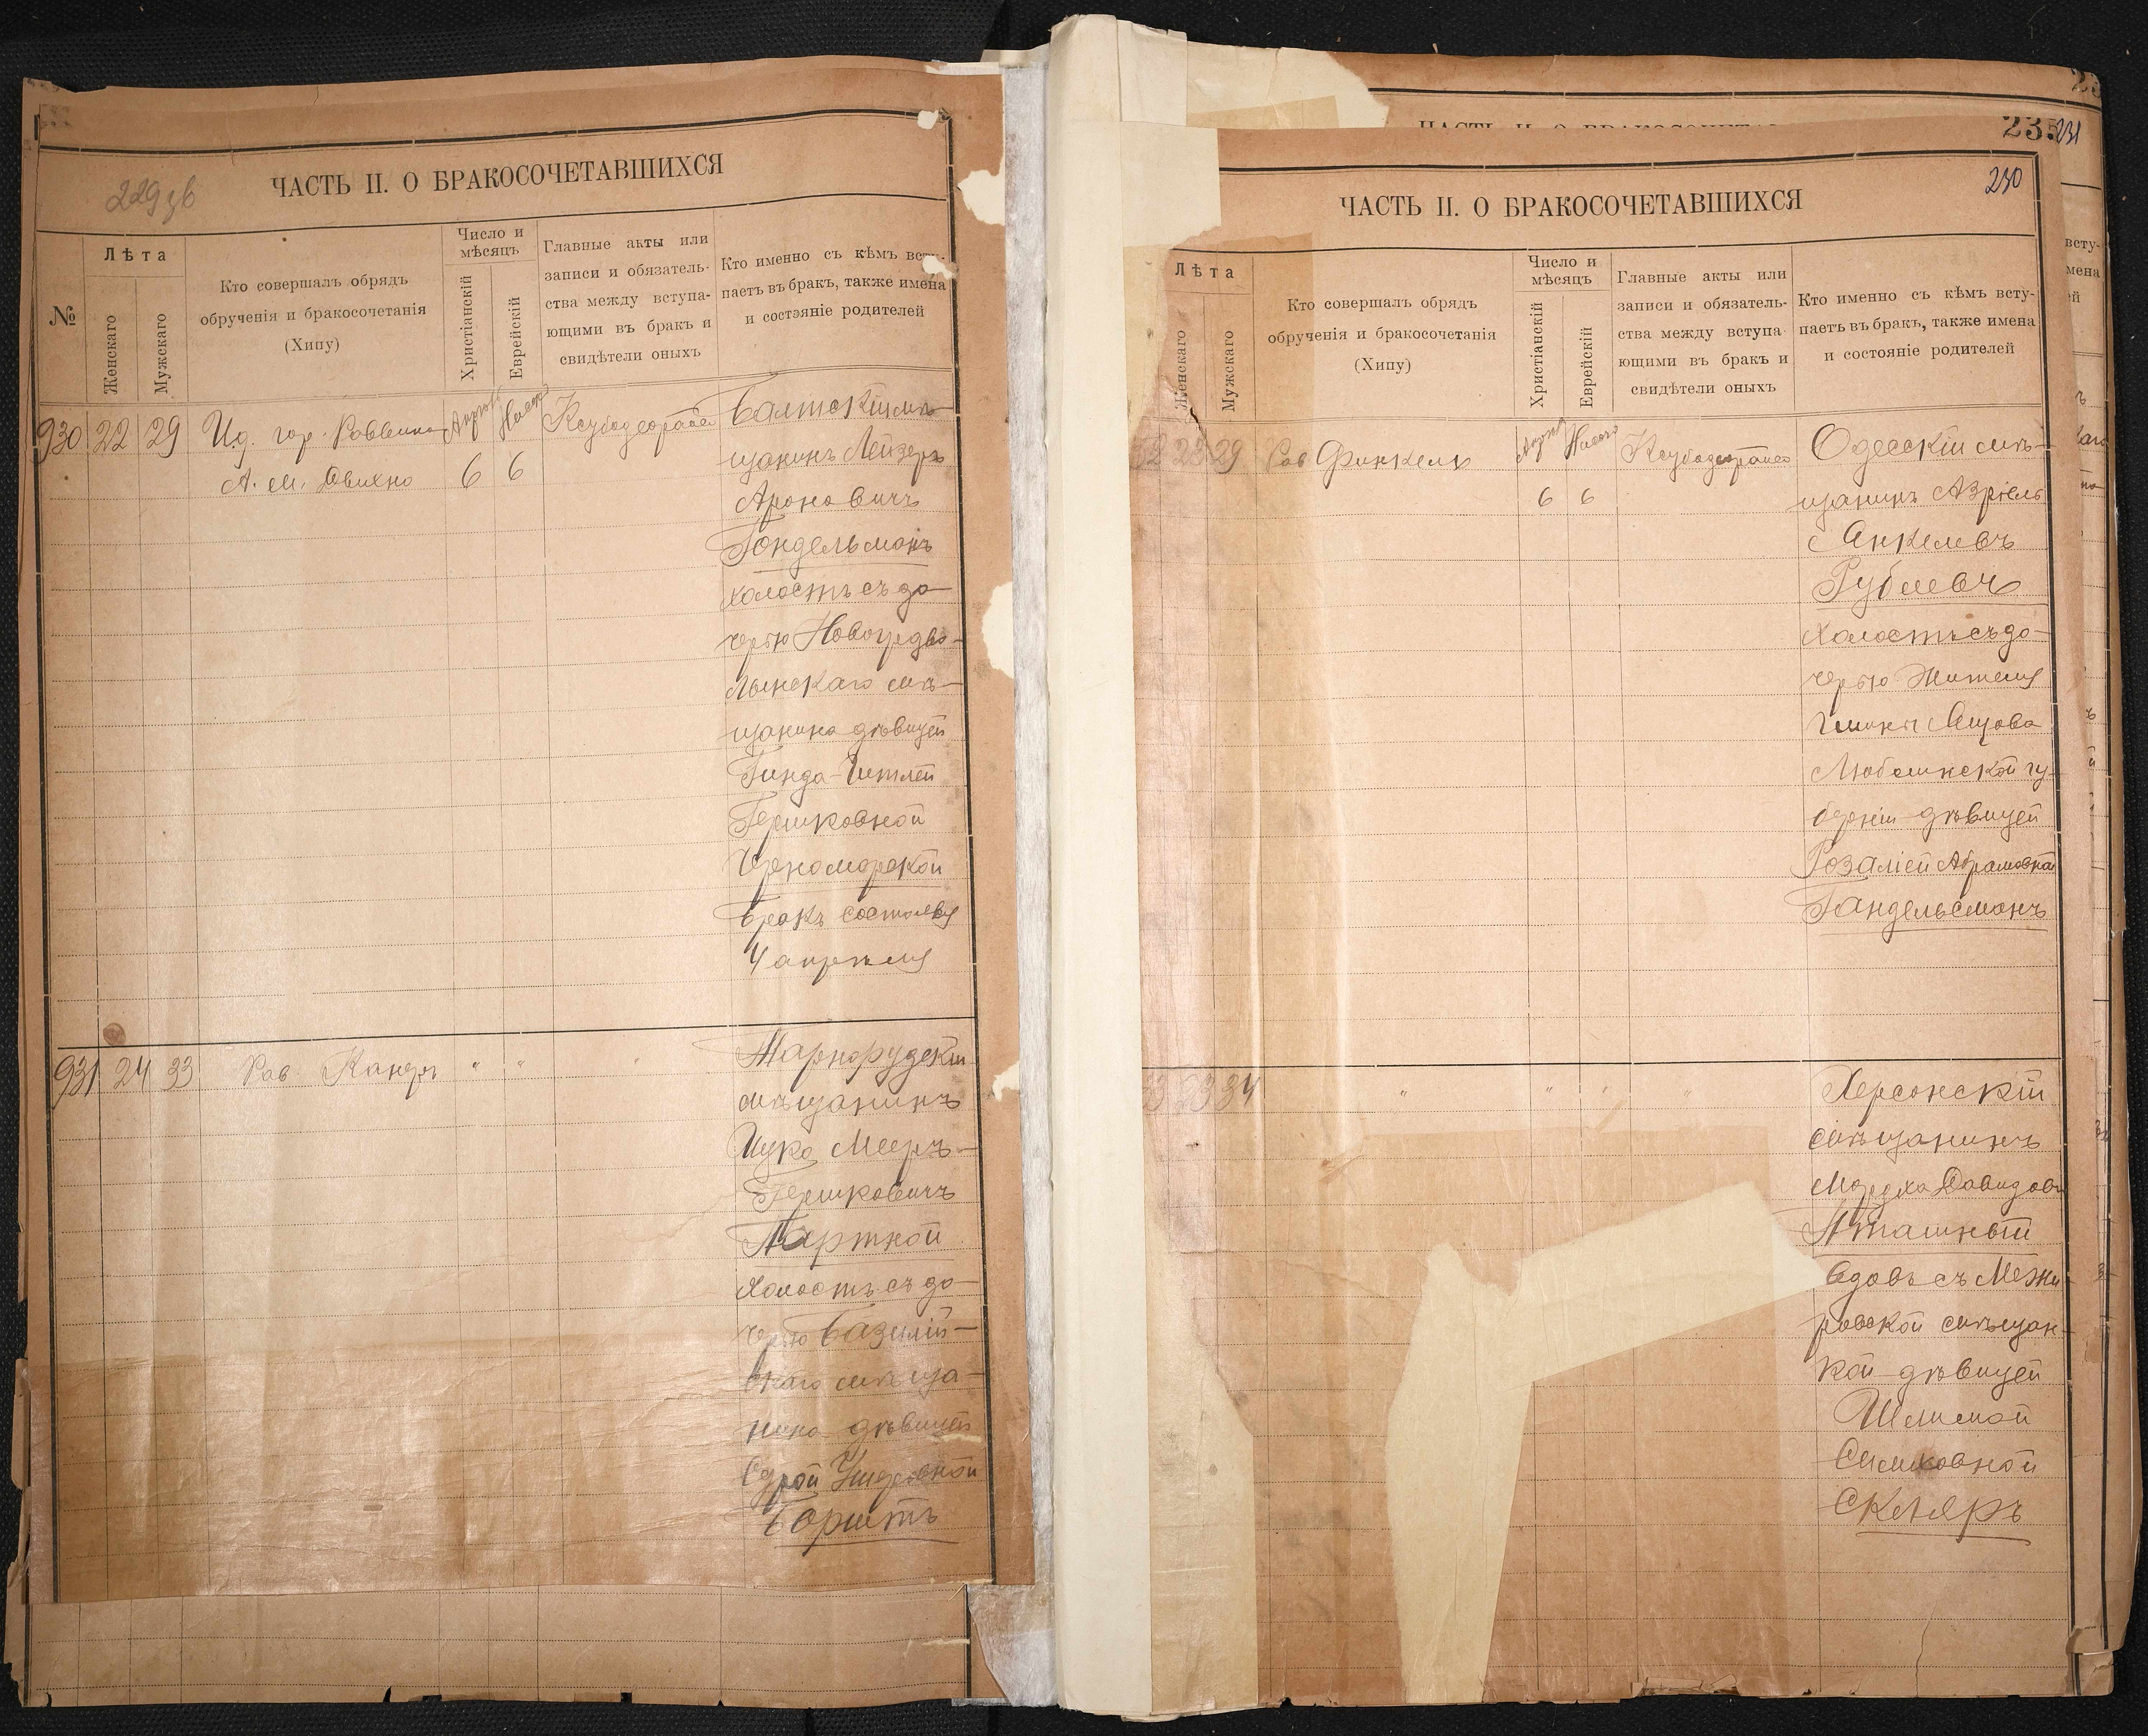 229 зв
ЧАСТЬ II. О БРАКОСОЧЕТАВШИХСЯ
№
Лѣта
Женскаго
Мужскаго
Кто совершалъ обрядъ
обрученія и бракосочетанія
(Хипу)
Число и
мѣсяцъ
Христіанскій
Еврейскій
Главные акты или
записи и обязатель-
ства между вступа-
ющими въ бракъ и
свидѣтели оныхъ
Кто именно съ кѣмъ всту-
паетъ въ бракъ, также имена
и состояніе родителей
930 22 29
И.д. гор. Раввина
А. М.
6 6
Балтскій мѣ-
щанинъ Лейзеръ
Ароновичъ
Гондельманъ
холостъ съ до-
черью
лынскаго мѣ-
щанина дѣвицей
Гинда-
Гершковной
Черноморской
Бракъ состоялся
4 апрѣля
931 24 33
Рав. Канеръ
" " "
Жарнорудскій
мѣщанинъ
Ицко Мееръ-
Гершковичъ
Партной
Холостъ съ до-
черью Базилій-
скаго мѣща-
нина дѣвицей
Ушеровной
Борштъ
ЧАСТЬ II. О БРАКОСОЧЕТАВШИХСЯ
231
230
ЧАСТЬ II. О БРАКОСОЧЕТАВШИХСЯ
Лѣта
Женскаго
Мужскаго
Кто совершалъ обрядъ
обрученія и бракосочетанія
(Хипу)
Число и
мѣсяцъ
Христіанскій
Еврейскій
Главные акты или
записи и обязатель-
ства между вступа-
ющими въ бракъ и
свидѣтели оныхъ
Кто именно съ кѣмъ всту-
паетъ въ бракъ, также имена
и состояніе родителей
32 23 29
Рав Финкель
6 6
Одесскій мѣ-
щанинъ Азріель
Анкелевъ
Рублевъ
Холостъ съ до-
черью Жителя
гмины
Люблинской гу-
берніи дѣвицей
Розаліей Абрамовной
Гандельсманъ
33 23 34
" " " "
Херсонскій
мѣщанинъ
Мордко Давидовъ
вдовъ съ Межи-
ровской мѣщан-
кой дѣвицей
Шлимой
Симховной
Скляръ